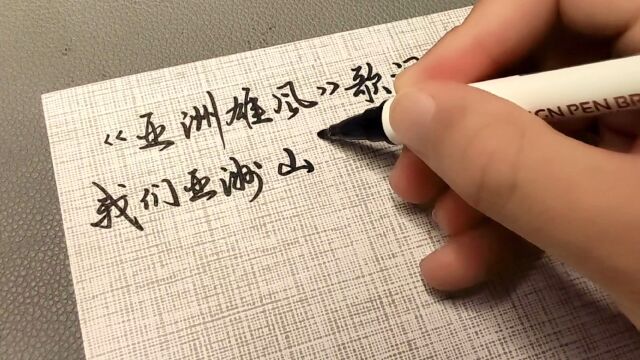 《亚洲雄风》歌词
我们亚洲山
SIGN PEN BR